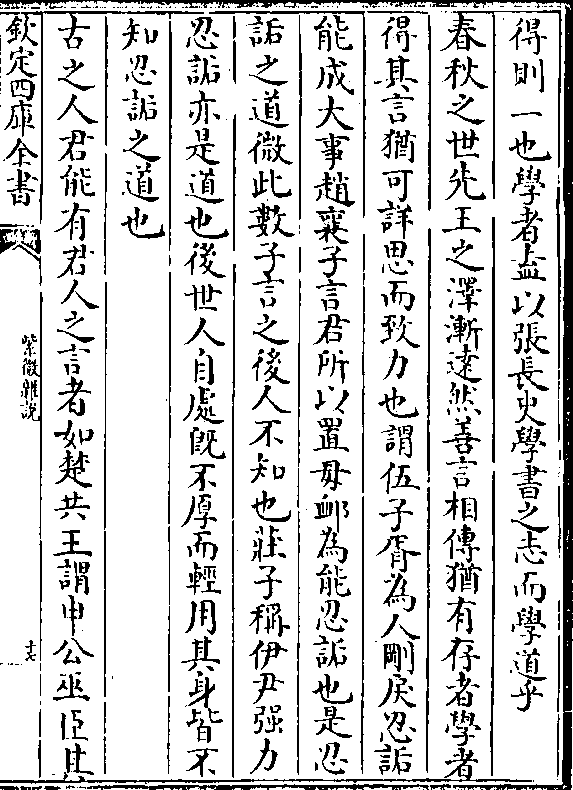 得則一也學者盍以張長史學書之志而學道乎
春秋之世先王之澤漸遠然善言相傳猶有存者學者
得其言猶可詳思而致力也謂伍子胥為人剛戾忍詬
能成大事趙襄子言君所以置毋卹為能忍詬也是忍
詬之道微此數子言之後人不知也莊子稱伊尹强力
忍詬亦是道也後世人自處旣不厚而輕用其身皆不
知忍詬之道也
古之人君能有君人之言者如楚共王謂申公巫臣其
欽定四庫全書
紫微雜說
十七